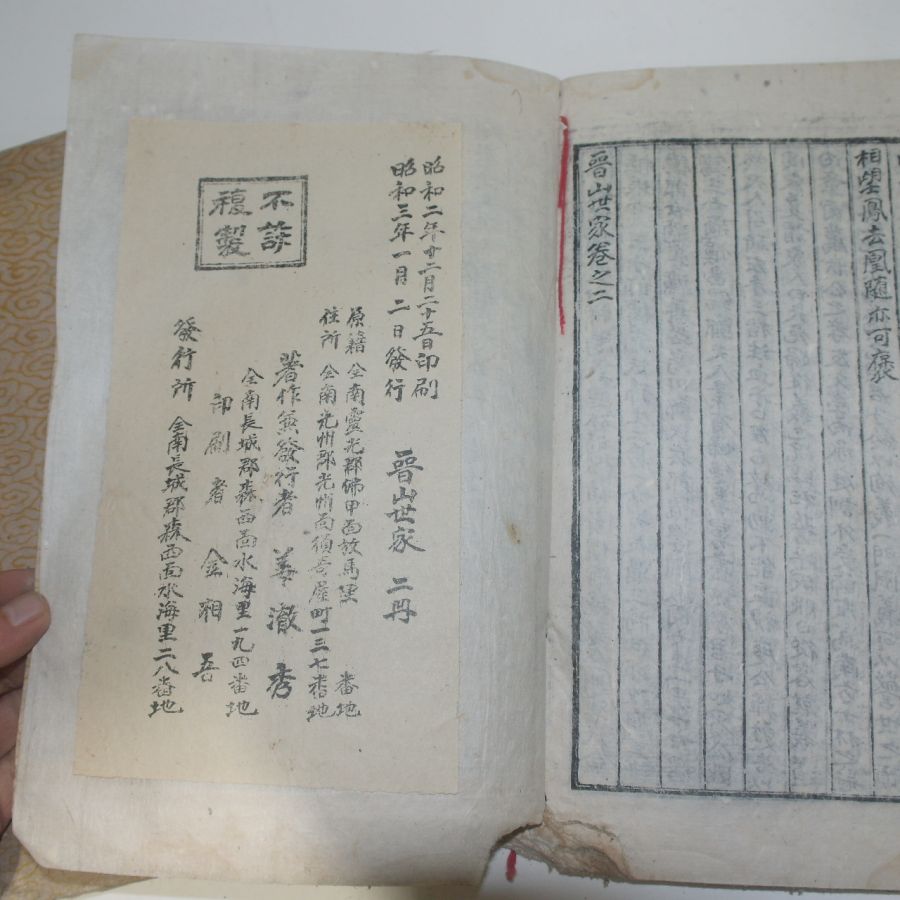 鳳去凰隨亦可褒
晋山世家卷之二
昭和二年十二月二十五日印刷
昭和三年一月二日發行
晋山世家 二冊
原籍 全南靈光郡佛甲面放馬里 番地
住所 全南光州郡光州面須奇屋町一三七番地
著作兼發行者 姜澈秀
全南長城郡森西面水海里一九四番地
印刷者 金湘吾
發行所 全南長城郡森西面水海里二八番地
不許
複製